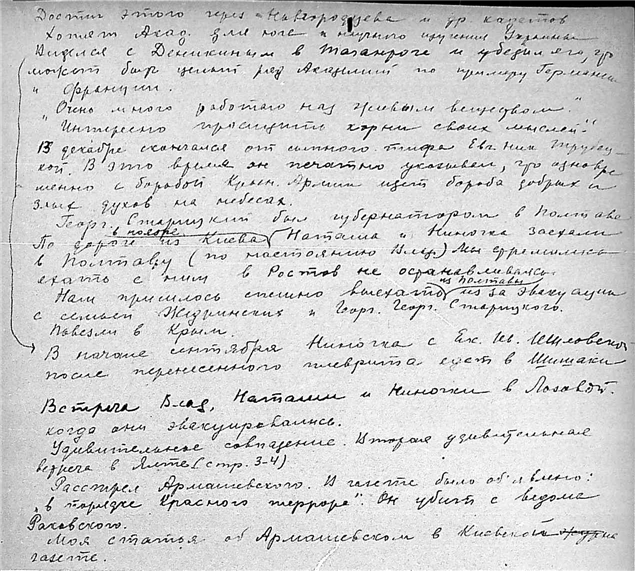 Достиг этого через Новгородцева и др кадетов
Хотят Акад. для юга и научного изучения Украины
Виделся с Деникиным в Таганроге и убедил его, что
может быть целый ряд Академий по примеру Германии
и Франции.
"Очно много работаю над живым веществом."
"Интересно проследить корни своих мыслей."
В декабре скончался от сыпного тифа Евгений Трубец-
кой. В это время он печатно указывал, что одновре-
менно с борьбой Красн. Армии идет борьба добрых и
злых духов на небесах.
Георг. Старицкий был губернатором в Полтаве
По дороге в поезде из Киева Наташа и Ниночка заехали
в Полтаву (по настоянию Влад.) Мы стремились
ехать с ним в Ростов не останавливаясь
Нам пришлось спешно выехать из Полтавы из за эвакуации
с семьей и Георг. Георг. Старицкого.
Повезли в Крым.
В начале сентября Ниночка с Ек. Ив.
после перенесенного плеврита едет в Шишаки
Встреча Влад, Наташи и Ниночки в Лозовой.
когда они эвакуировались.
Удивительное совпадение. Вторая удивительная
встреча в Ялте (стр. 3-4)
Расстрел Армашевского. В газете было об'явлено:
"в порядке Красного террора". Он убит с ведома
Раковского.
Моя статья об Армашевском в Киевской
газете.